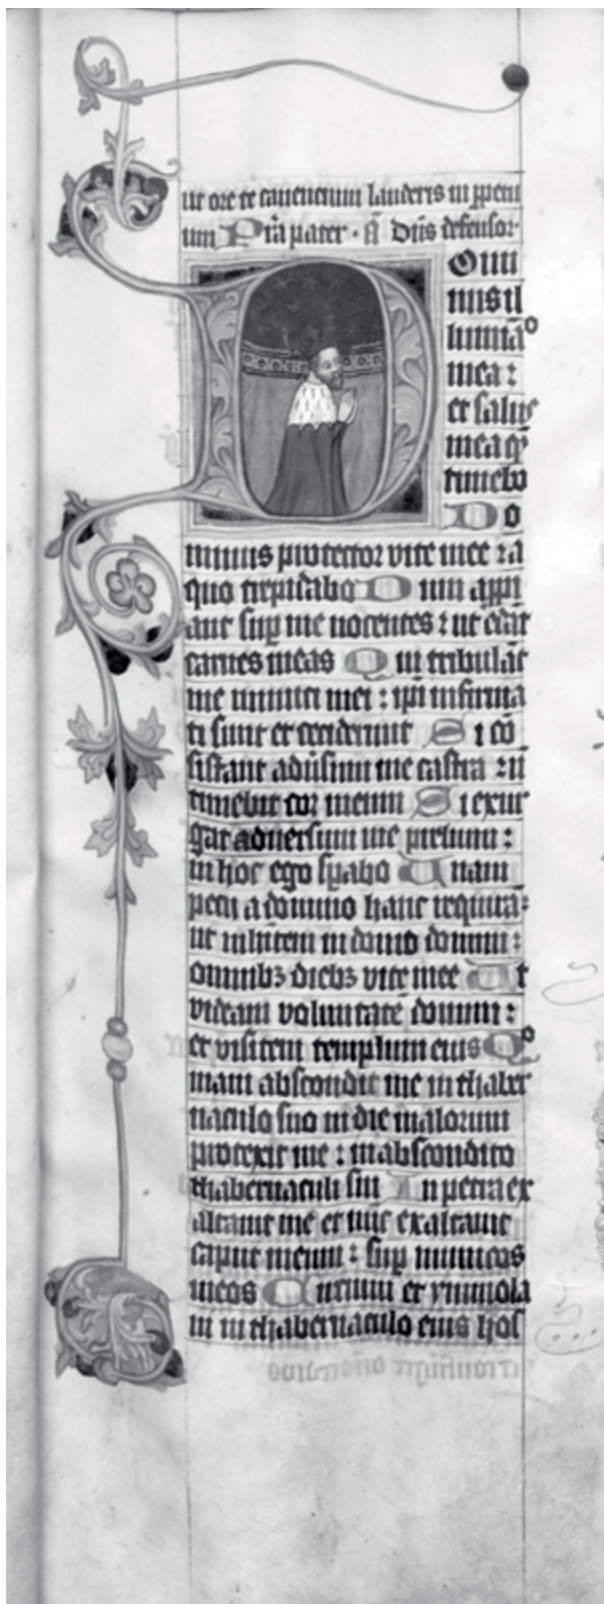 ut ore te canentium lauderis in ppetu
um Pr̄a pater · ā Dn̄s defensor ·
Omi
nus il
lumīa°
mea :
et salus
mea q̄
timebo
Do
minus protector vite mee : a
quo trepidabo Dum appi
ant sup me nocentes : ut edāt
carnes meas Qui tribulāt
me inimici mei : ipī infirma
ti sunt et ceciderunt Si cō
sistant adūsum me castra : nō
timebit cor meum Si exur
gat adversum me prelium :
in hoc ego spabo Unam
petii a domino hanc requirā :
ut inhitem in domo domini :
omnibȝ diebȝ vite mee Ut
videam voluntatē domini :
et visitem templum eius Qº
niam abscondit me in thaber
naculo suo in die malorum
protexit me : in abscondito
thabernaculi sui In petra ex
altavit me et nūc exaltavit
caput meum : sup inimicos
meos Circuivi et ymmola
vi in thabernaculo eius hos